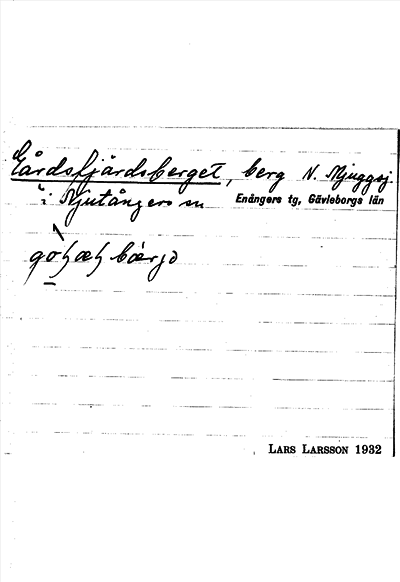 Gårdsfjärdsberget, berg N. Njuggsj.
i Njutångers sn Enångers tg, Gävleborgs län
bærjə
LARS LARSSON 1932